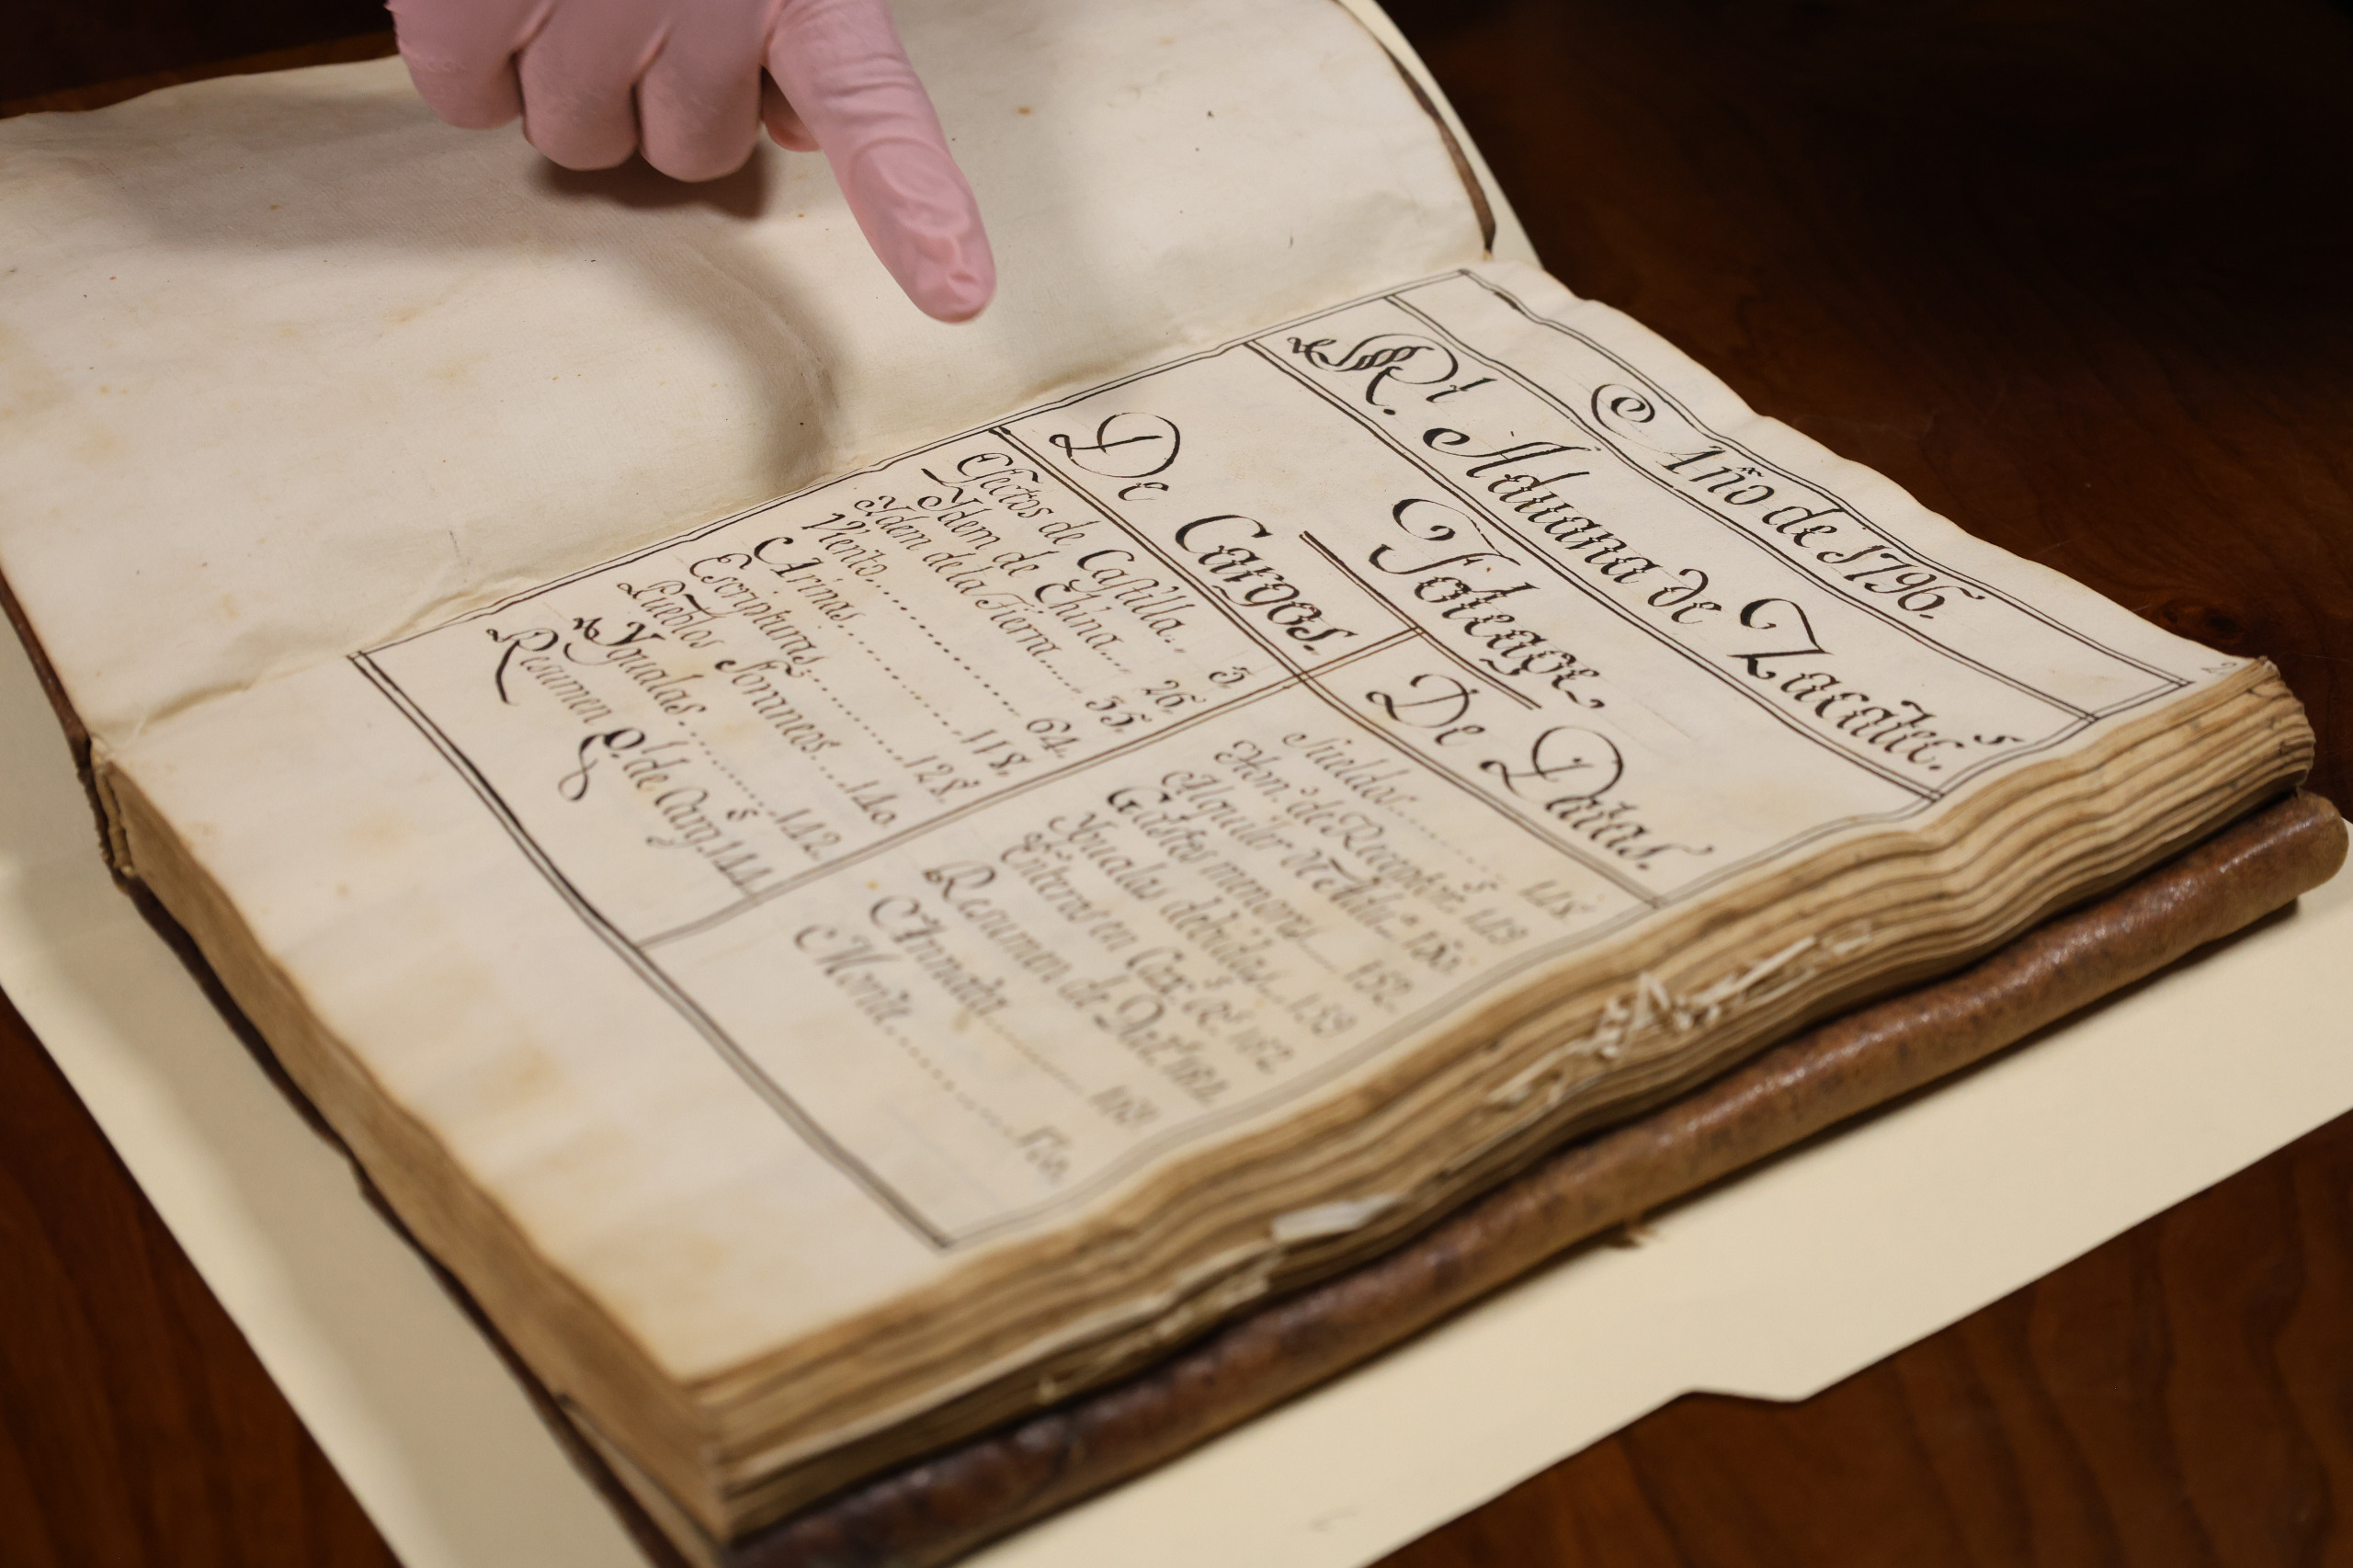 Año de 1796.
Rl. Aduana de Zacatec.s
Foleage
De Cargos.
Efectos de Castilla.. 3.
Ydem de China... 26.
Ydem de la Tierra..... 35.
Viento............ 64.
Arinas............ 118.
Escripturas............ 128.
Pueblos foraneos.... 140.
Ygualas............ 142.
Resumen gl. de Carg.s 144.
De Datas.
Sueldos..........
Hon.s de Recepter.s
Alquilar de Adu.a 150.
Gastos menores 152.
Ygualas debidas 159
Enteros en Cax.s
Resumen de Dat.s
Annata
Monte